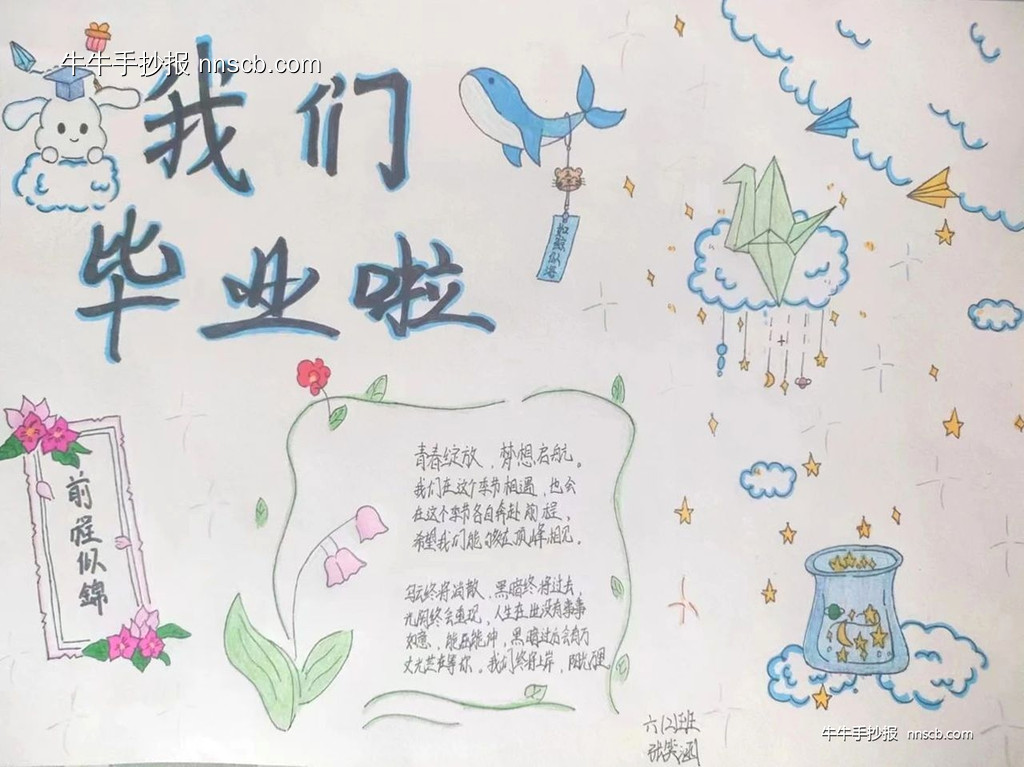 牛牛手抄报 nnscb.com
我们
毕业啦
如鲸似海
前程似錦
青春绽放，梦想启航。
我们在这个季节相遇，也会
在这个季节各自奔赴前程，
希望我们能够在顶峰相见。
乌云终将消散，黑暗终将过去，
光阴终会重现，人生在世没有事事
如意，能屈能伸，黑暗过后会有万
丈光芒在等你。我们终将上岸，阳光万里
六(2)班
张
涵
牛牛手抄报 nnscb.com